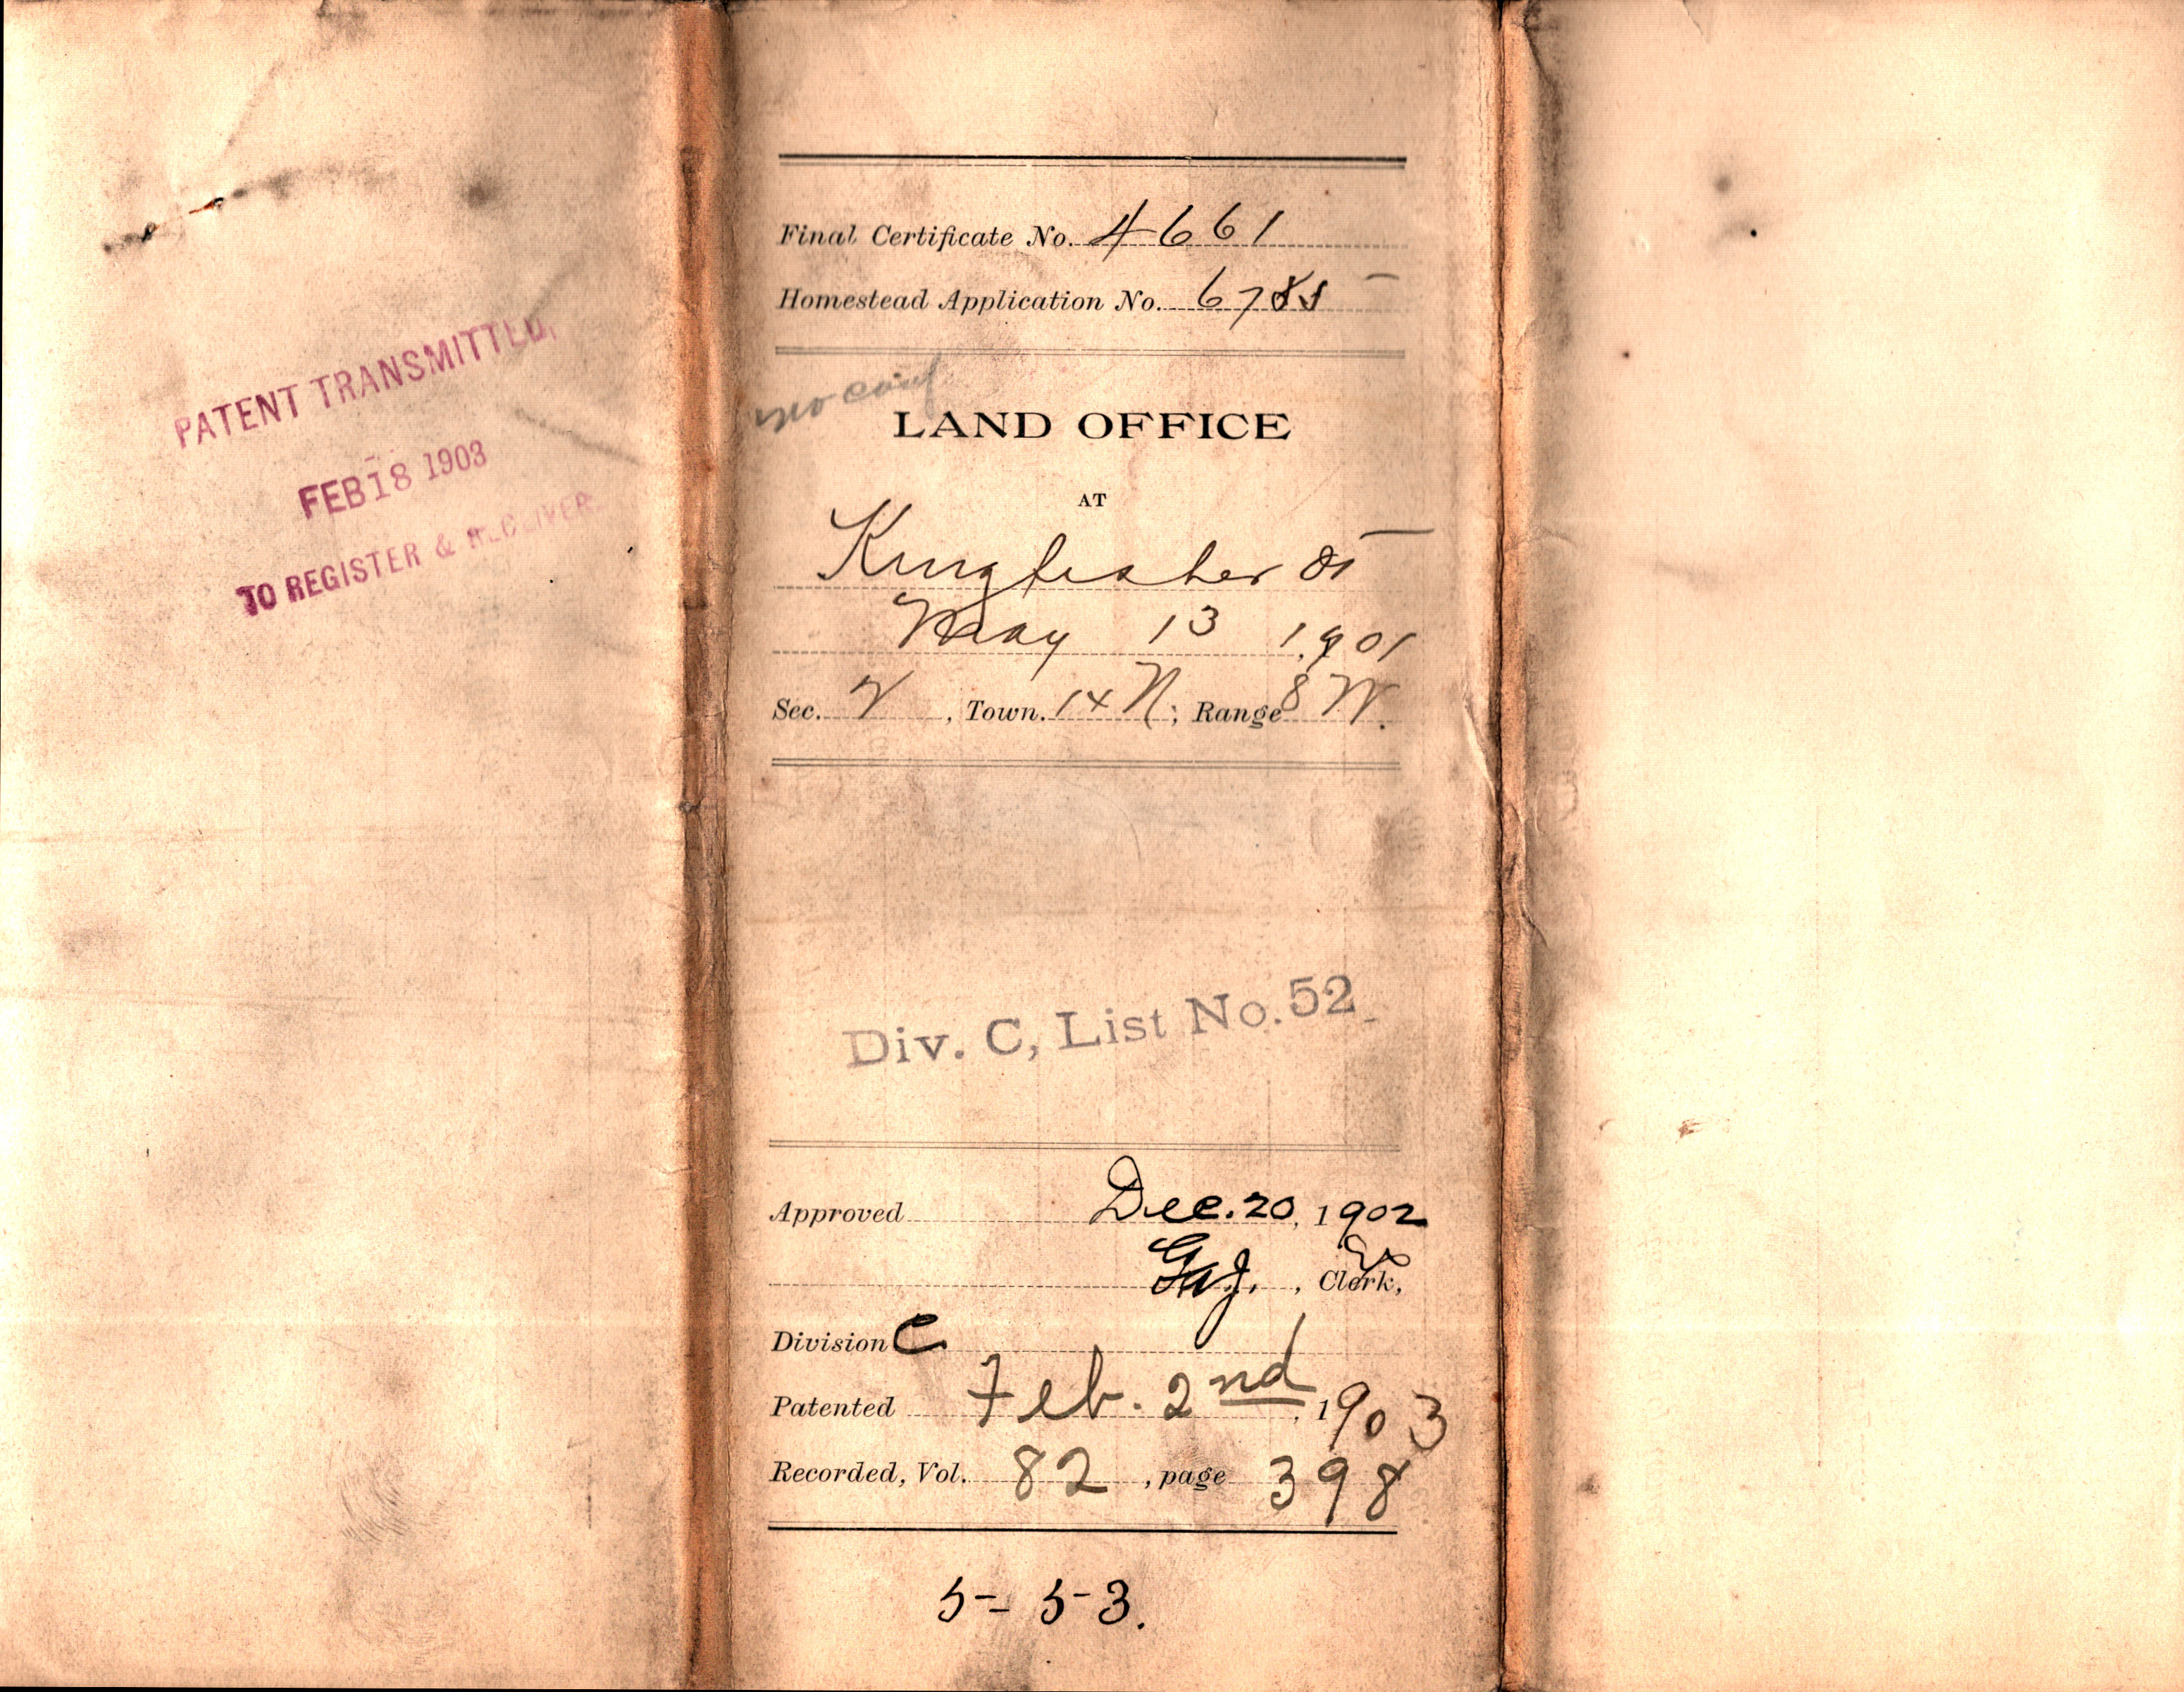 PATENT TRANSMITTED,
FEB 18 1903
TO REGISTER & RECEIVER.
Final Certificate No. 4661
Homestead Application No. 6785
no conf
LAND OFFICE
AT
Kingfisher OT
May 13 1901
Sec. 2, Town. 14 N; Range 8 W.
Div. C, List No. 52
Approved Dec. 20, 1902
GAJ., Clerk,
Division C
Patented Feb. 2nd, 1903
Recorded, Vol. 82, page 398
5-53.